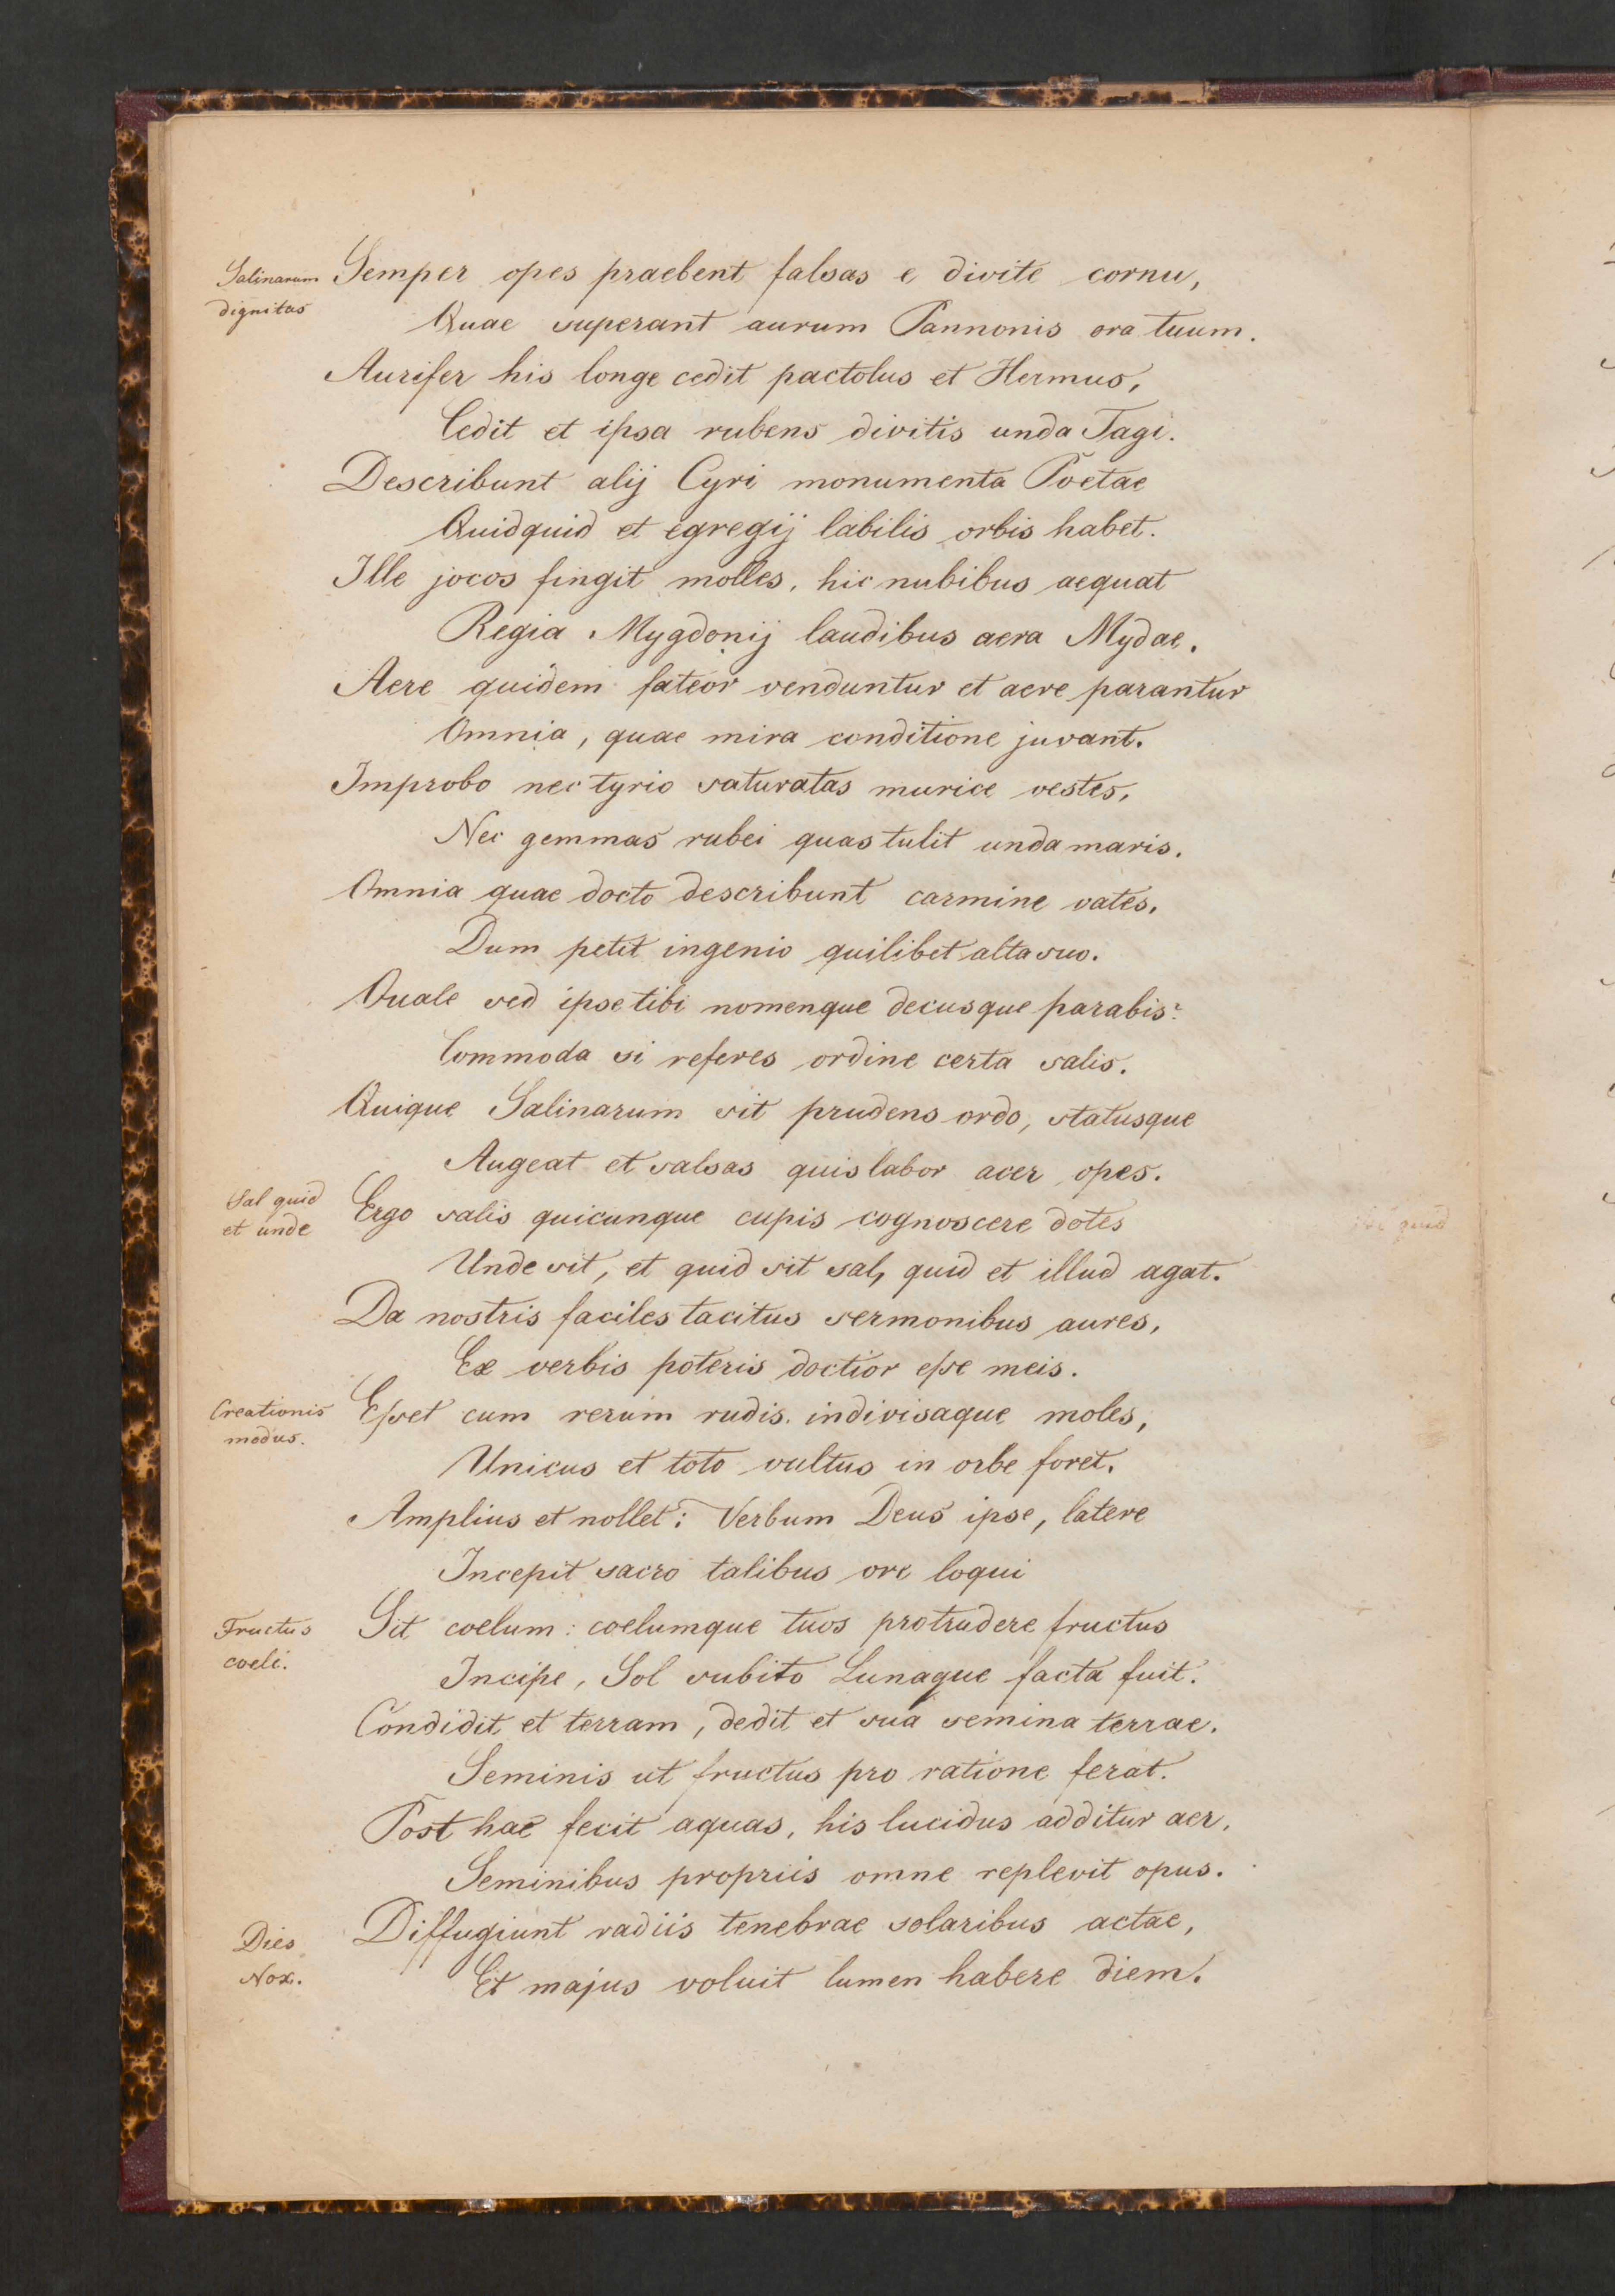 Salinarum
dignitas
Semper opes praebent falsas e divite cornu,
Quae superant aurum Pannonis ora tuum.
Aurifer his longe cedit pactolus et Hermus,
Cedit et ipsa rubens divitis unda Tagi.
Describunt alij Cyri monumenta Poetae
Quidquid et egregij labilis orbis habet.
Ille jocos fingit molles, hic nubibus aequat
Regia Mygdonij laudibus aera Mydae.
Aere quidem fateor venduntur et aere parantur
Omnia, quae mira conditione juvant.
Improbo nec tyrio saturatas murice vestes,
Nec gemmas rubei quas tulit unda maris.
Omnia quae docto describunt carmine vates,
Dum petit ingenio quilibet alta suo.
Quale sed ipse tibi nomenque decusque parabis?
Commoda si referes ordine certa salis.
Quique Salinarum sit prudens ordo, statusque
Augeat et salsas quis labor acer opes.
Sal quid
et unde
Ergo salis quicunque cupis cognoscere dotes
Unde sit, et quid sit sal, quid et illud agat.
Da nostris faciles tacitus sermonibus aures,
Ex verbis poteris doctior eſse meis.
Creationis
modus.
Eſset cum rerum rudis indivisaque moles,
Unicus et toto vultus in orbe foret.
Amplius et nollet: Verbum Deus ipse, latere
Incepit sacro talibus ore loqui
Fructus
coeli.
Sit coelum: coelumque tuos protrudere fructus
Incipe, Sol subito Lunaque facta fuit.
Condidit et terram, dedit et sua semina terrae.
Seminis ut fructus pro ratione ferat.
Post hac fecit aquas, his lucidus additur aer,
Seminibus propriis omne replevit opus.
Dies
Nox.
Diffugiunt radiis tenebrae solaribus actae,
Et majus voluit lumen habere diem.